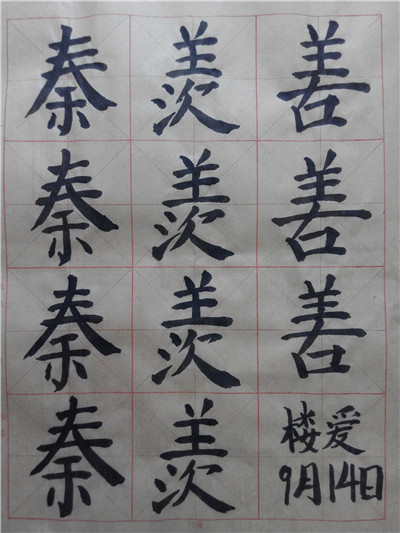 秦羡善
秦羡善
秦羡善
秦羡
楼爱
9月14日